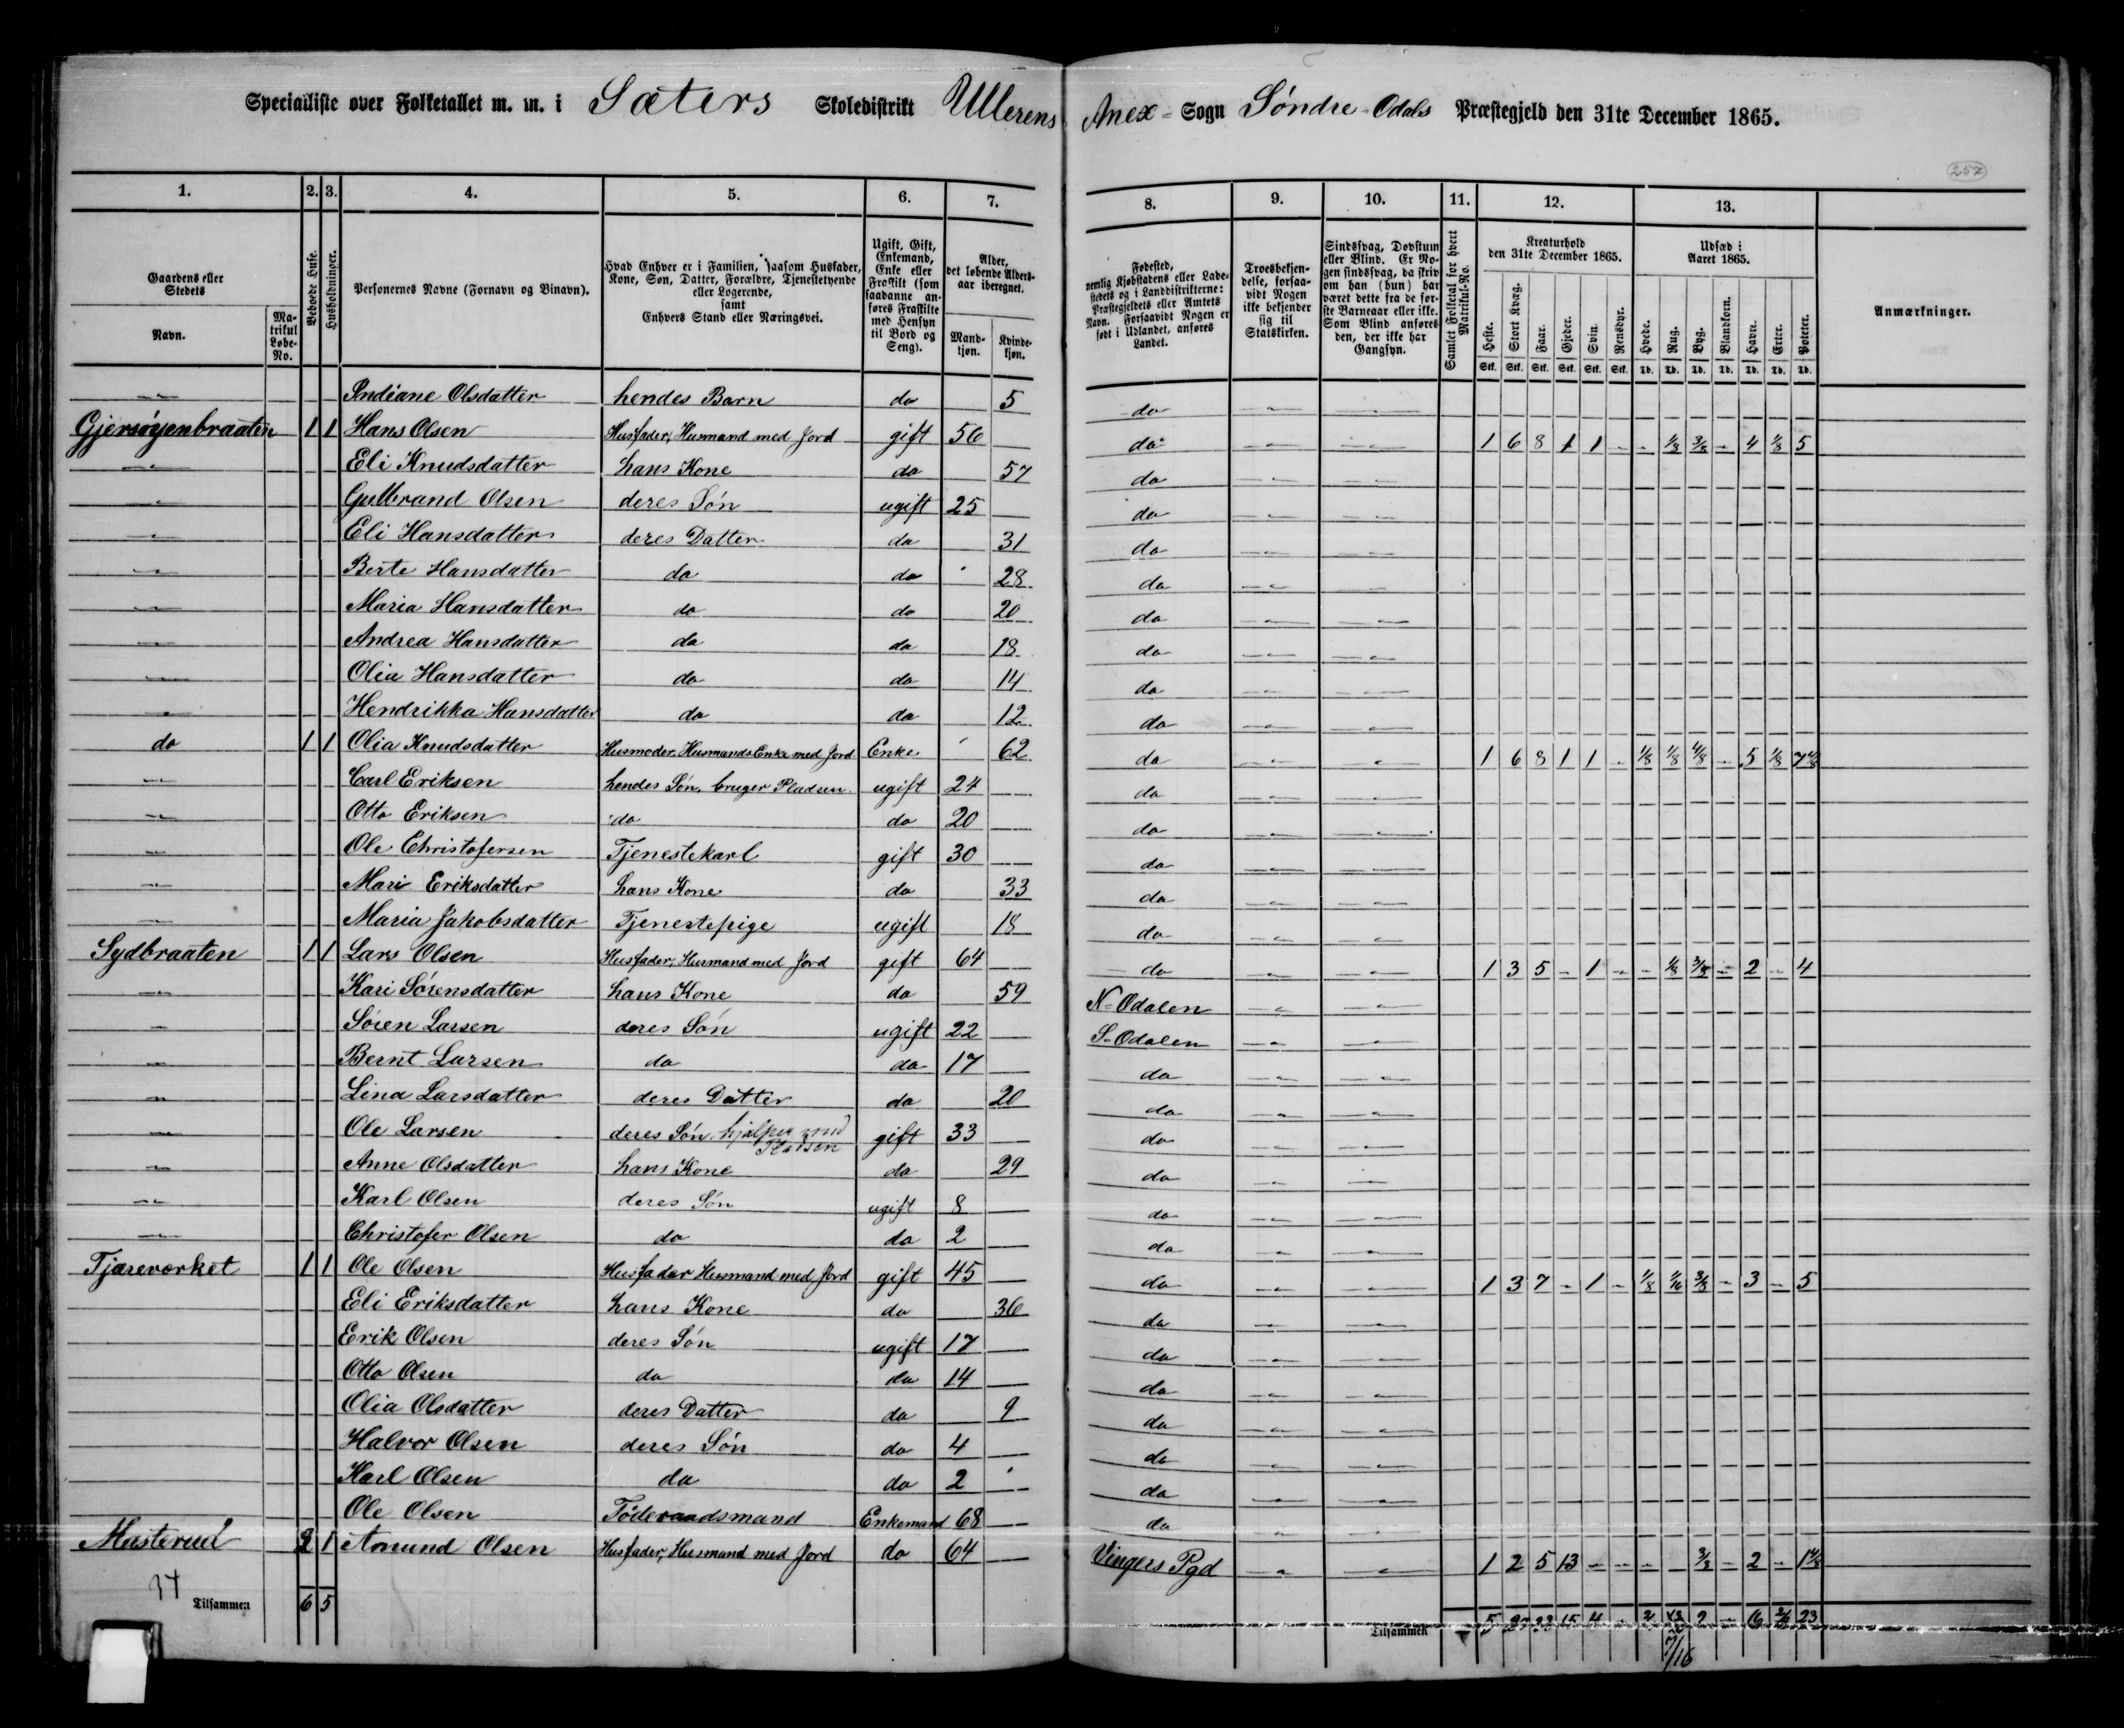 Specialliste over Folketallet m. m. i Sæters Skoledistrikt Ullerens Anex - Sogn Søndre-Odals Præstegjeld den 31te December 1865.
257
1. 2. 3. 4. 5. 6. 7. 8. 9. 10. 11. 12. 13.
Gaardens eller Stedets
Navn.
Matrikul Løbe-No.
Beboede Huse.
Husholdninger.
Personernes Navne (Fornavn og Binavn).
Hvad Enhver er i Familien, saasom Husfader, Kone, Søn, Datter, Forældre, Tjenestetyende eller Logerende, samt Enhvers Stand eller Næringsvei.
Ugift, Gift, Enkemand, Enke eller Fraskilt (som saadanne anføres Fraskilte med Hensyn til Bord og Seng).
Alder, det løbende Aldersaar iberegnet.
Mandkjøn. Kvindekjøn.
Fødested, nemlig Kjøbstadens eller Ladestedets og i Landdistrikterne: Præstegjeldets eller Amtets Navn. Forsaavidt Nogen er født i Udlandet, anføres Landet.
Troesbekjendelse, forsaavidt Nogen ikke bekjender sig til Statskirken.
Sindssvag, Døvstum eller Blind. Er Nogen sindssvag, da skriv om han (hun) har været dette fra de første Barneaar eller ikke. Som Blind anføres den, der ikke har Gangsyn.
Samlet Folketal for hvert Matrikul-No.
Kreaturhold den 31te December 1865.
Heste. Stort Kvæg. Faar. Gjeder. Svin. Rensdyr.
Stk. Stk. Stk. Stk. Stk. Stk.
Udsæd i Aaret 1865.
Hvede. Rug. Byg. Blandkorn. Havre. Erter. Poteter.
Td. Td. Td. Td. Td. Td. Td.
Anmærkninger.
Indiane Olsdatter hendes Barn do 5 do
Gjersøyenbraaten 1 1 Hans Olsen Husfader, Husmand med Jord gift 56 do 1 6 8 1 1 - - 1/8 3/8 - 4 1/8 5
Eli Knudsdatter hans Kone do 57 do
Gulbrand Olsen deres Søn ugift 25 do
Eli Hansdatter deres Datter do 31 do
Berte Hansdatter do do 28 do
Maria Hansdatter do do 20 do
Andrea Hansdatter do do 18 do
Olia Hansdatter do do 14 do
Hendrikka Hansdatter do do 12 do
do 1 1 Olia Knudsdatter Husmoder, Husmands Enke med Jord Enke 62 do 1 6 8 1 1 - 1/8 1/8 4/8 - 5 1/8 7 4/8
Carl Eriksen hendes Søn, bruger Pladsen ugift 24 do
Otto Eriksen do do 20 do
Ole Christofersen Tjenestekarl gift 30 do
Mari Eriksdatter hans Kone do 33 do
Maria Jakobsdatter Tjenestepige ugift 18 do
Sydbraaten 1 1 Lars Olsen Husfader, Husmand med Jord gift 64 do 1 3 5 - 1 - - 1/8 3/8 - 2 - 4
Kari Sørensdatter hans Kone do 59 N-Odalen
Søren Larsen deres Søn ugift 22 S-Odalen
Bernt Larsen do do 17 do
Lina Larsdatter deres Datter do 20 do
Ole Larsen deres Søn hjælper med Pladsen gift 33 do
Anne Olsdatter hans Kone do 29 do
Karl Olsen deres Søn ugift 8 do
Christofer Olsen do do 2 do
Tjæreværket 1 1 Ole Olsen Husfader Husmand med Jord gift 45 do 1 3 7 - 1 - 1/8 1/16 3/8 - 3 - 5
Eli Eriksdatter hans Kone do 36 do
Erik Olsen deres Søn ugift 17 do
Otto Olsen do do 14 do
Olia Olsdatter deres Datter do 9 do
Halvor Olsen deres Søn do 4 do
Karl Olsen do do 2 do
Ole Olsen Føderaadsmand Enkemand 68 do
Masterud 2 1 Amund Olsen Husfader, Husmand med Jord do 64 Vingers Pgd 1 2 5 13 - - - 3/8 - 2 - 1 4/8
34 Tilsammen 6 5
Tilsammen 5 15 4 - 2 - 16 2/8 23
7/16